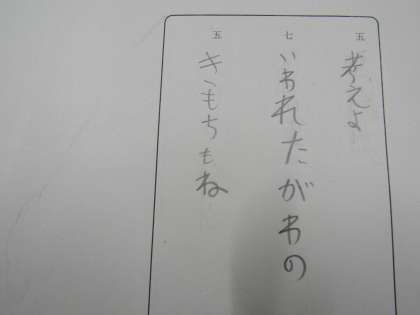 五 考えよ
七 いわれたがわの
五 きもちもね